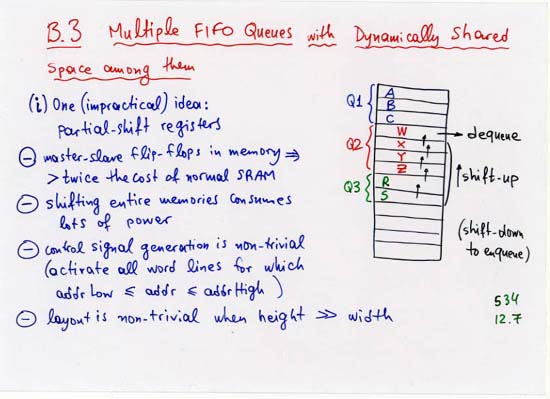 B.3 Multiple FIFO Queues with Dynamically Shared
Space among them
(i) One (impractical) idea:
partial-shift registers
⊖ master-slave flip-flops in memory ⇒
> twice the cost of normal SRAM
⊖ shifting entire memories consumes
lots of power
⊖ control signal generation is non-trivial
(activate all word lines for which
addrLow ≤ addr ≤ addrHigh)
⊖ layout is non-trivial when height ≫ width
Q1
A
B
C
Q2
W
X
Y
Z
Q3
R
S
→ dequeue
↑ shift-up
(shift-down
to enqueue)
534
12.7